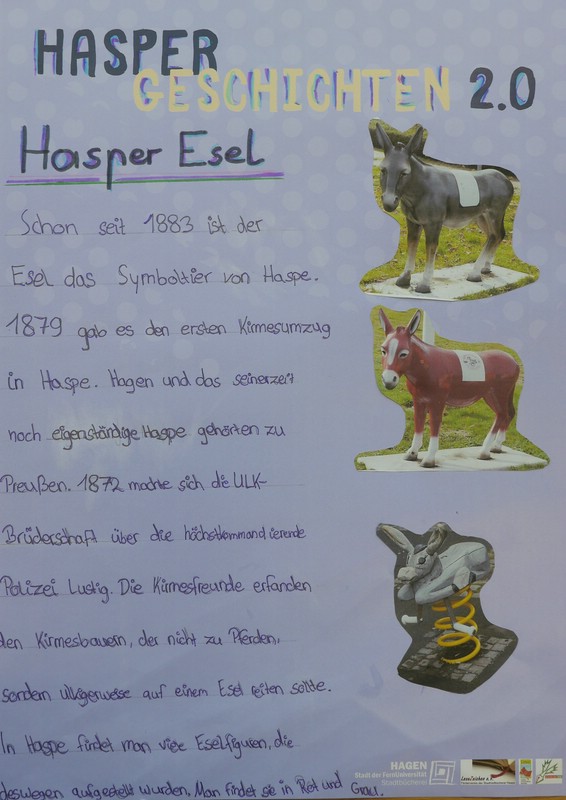 HASPER
GESCHICHTEN 2.0
Hasper Esel
Schon seit 1883 ist der
Esel das Symboltier von Haspe.
1879 gab es den ersten Kirmesumzug
in Haspe. Hagen und das seinerzeit
noch eigenständige Haspe gehörten zu
Preußen. 1872 machte sich die ULK-
Brüderschaft über die höchstkommandierende
Polizei Lustig. Die Kirmesfreunde erfanden
den Kirmesbauern, der nicht zu Pferden,
sondern ulkigerweise auf einem Esel reiten sollte.
In Haspe findet man viele Eselfiguren, die
deswegen aufgestellt wurden. Man findet sie in Rot und Grau.
HAGEN
Stadt der FernUniversität
Stadtbücherei
LeseZeichen e.V.